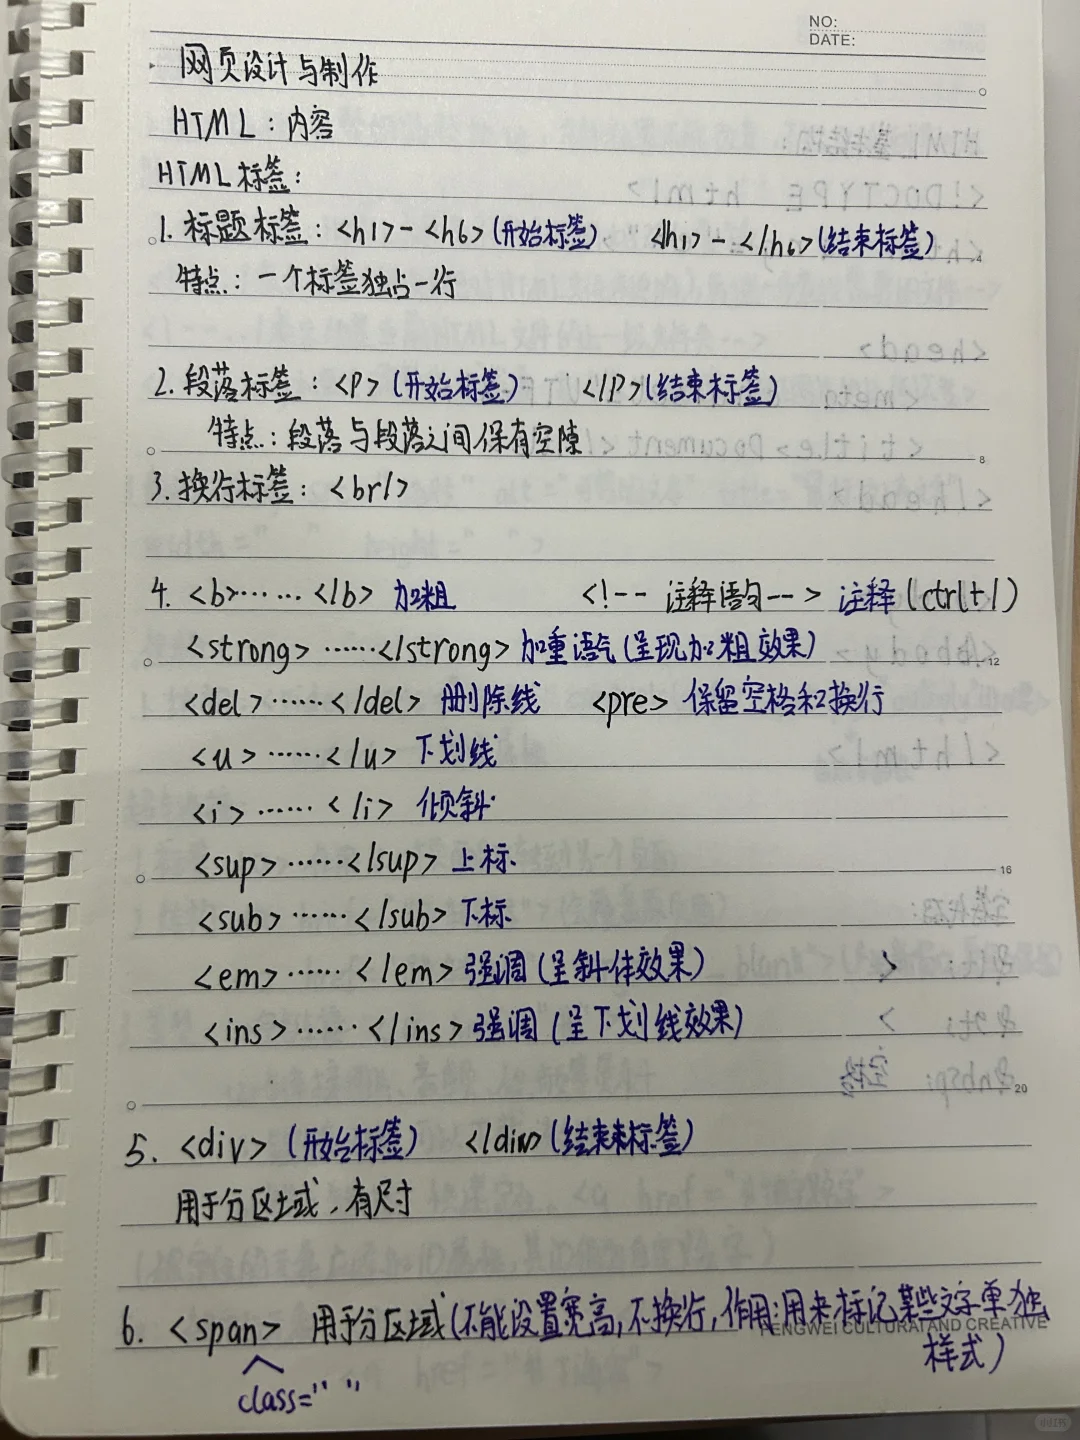 NO:
DATE:
网页设计与制作
HTML：内容
HTML标签：
1. 标题标签：<h1>-<h6>(开始标签) </h1>-</h6>(结束标签)
特点：一个标签独占一行
2. 段落标签：<P>(开始标签) </P>(结束标签)
特点：段落与段落之间保有空隙
3. 换行标签：<br/>
4. <b>……</b> 加粗 <!-- 注释语句 --> 注释(ctrl+/)
<strong>……</strong> 加重语气(呈现加粗效果)
<del>……</del> 删除线 <pre> 保留空格和换行
<u>……</u> 下划线
<i>……</i> 倾斜
<sup>……</sup> 上标
<sub>……</sub> 下标
<em>……</em> 强调(呈斜体效果)
<ins>……</ins> 强调(呈下划线效果)
5. <div>(开始标签) </div>(结束标签)
用于分区域，有尺寸
6. <span> 用于分区域(不能设置宽高,不换行,作用:用来标记某些文字单独
样式)
class=" "
4
8
12
16
20
PENGWEI CULTURAL AND CREATIVE
小红书